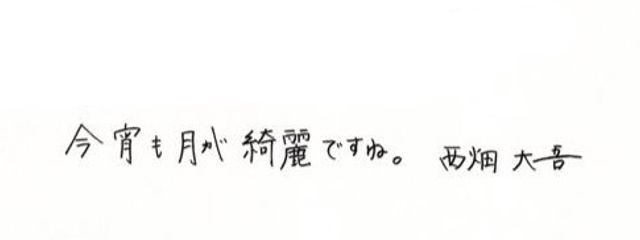 今宵も月が綺麗ですね。 西畑大吾